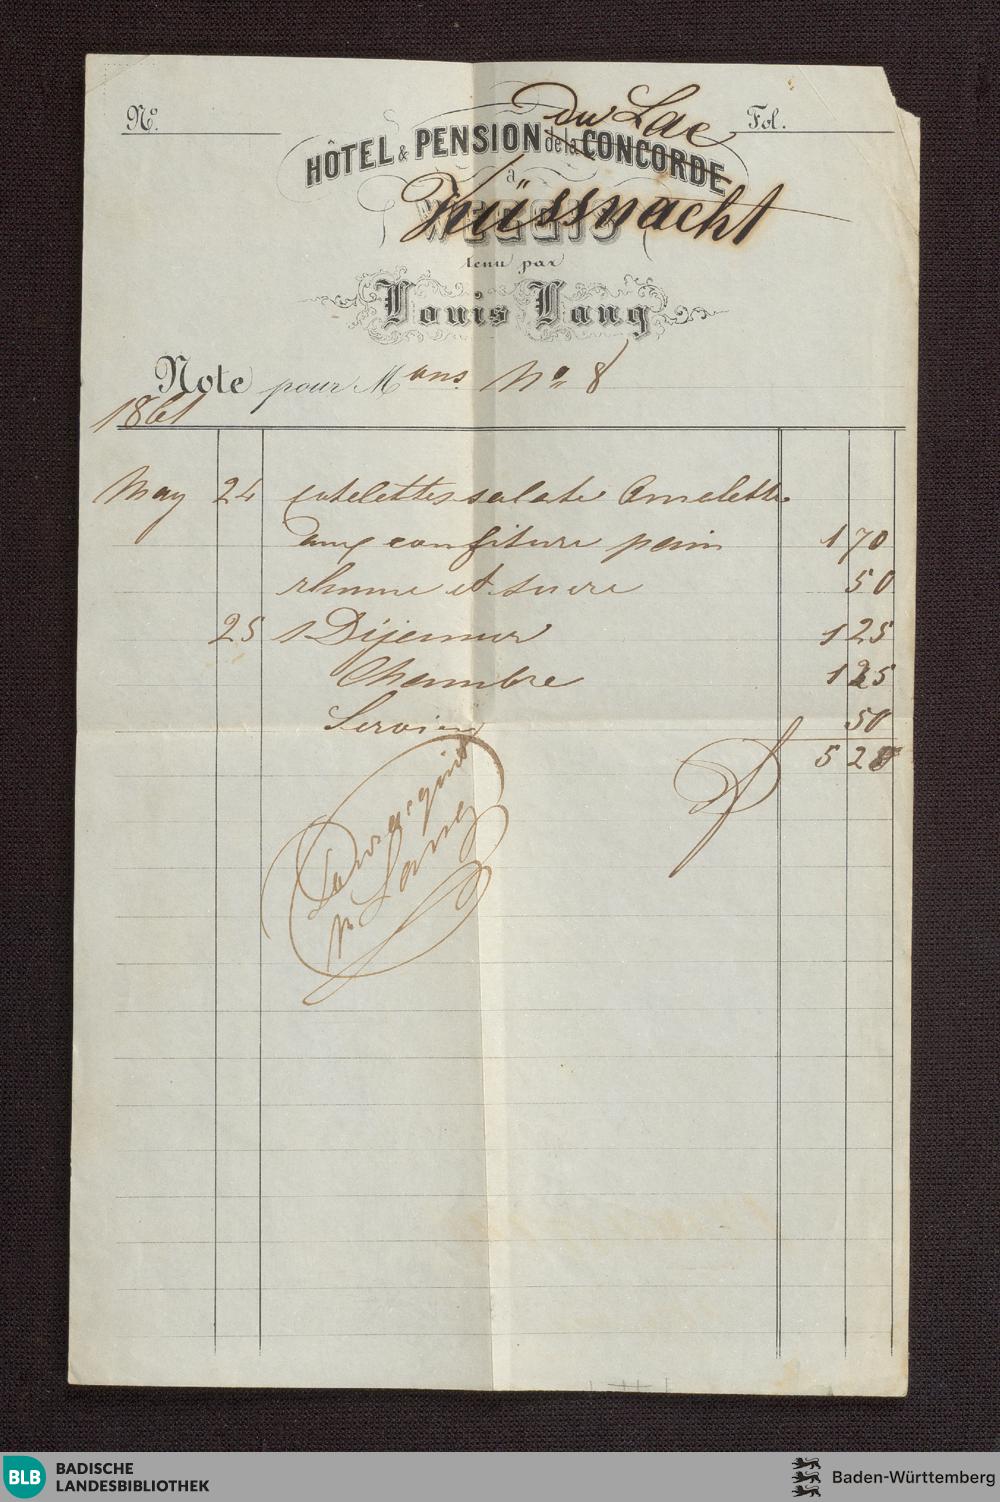 du Lac
No. Fol.
HÔTEL & PENSION de la CONCORDE
à
WEGGIS
Küssnacht
tenu par
Louis Lang
Note pour M ons No 8
1861
May 24 cotelettes salate Omelette
aux confiture pain 1 70
rhume et sucre 50
25 1 Dijeuner 1 25
Chambre 1 25
Service 50
5 20
Pour acquit
Lang
BLB BADISCHE
LANDESBIBLIOTHEK
Baden-Württemberg